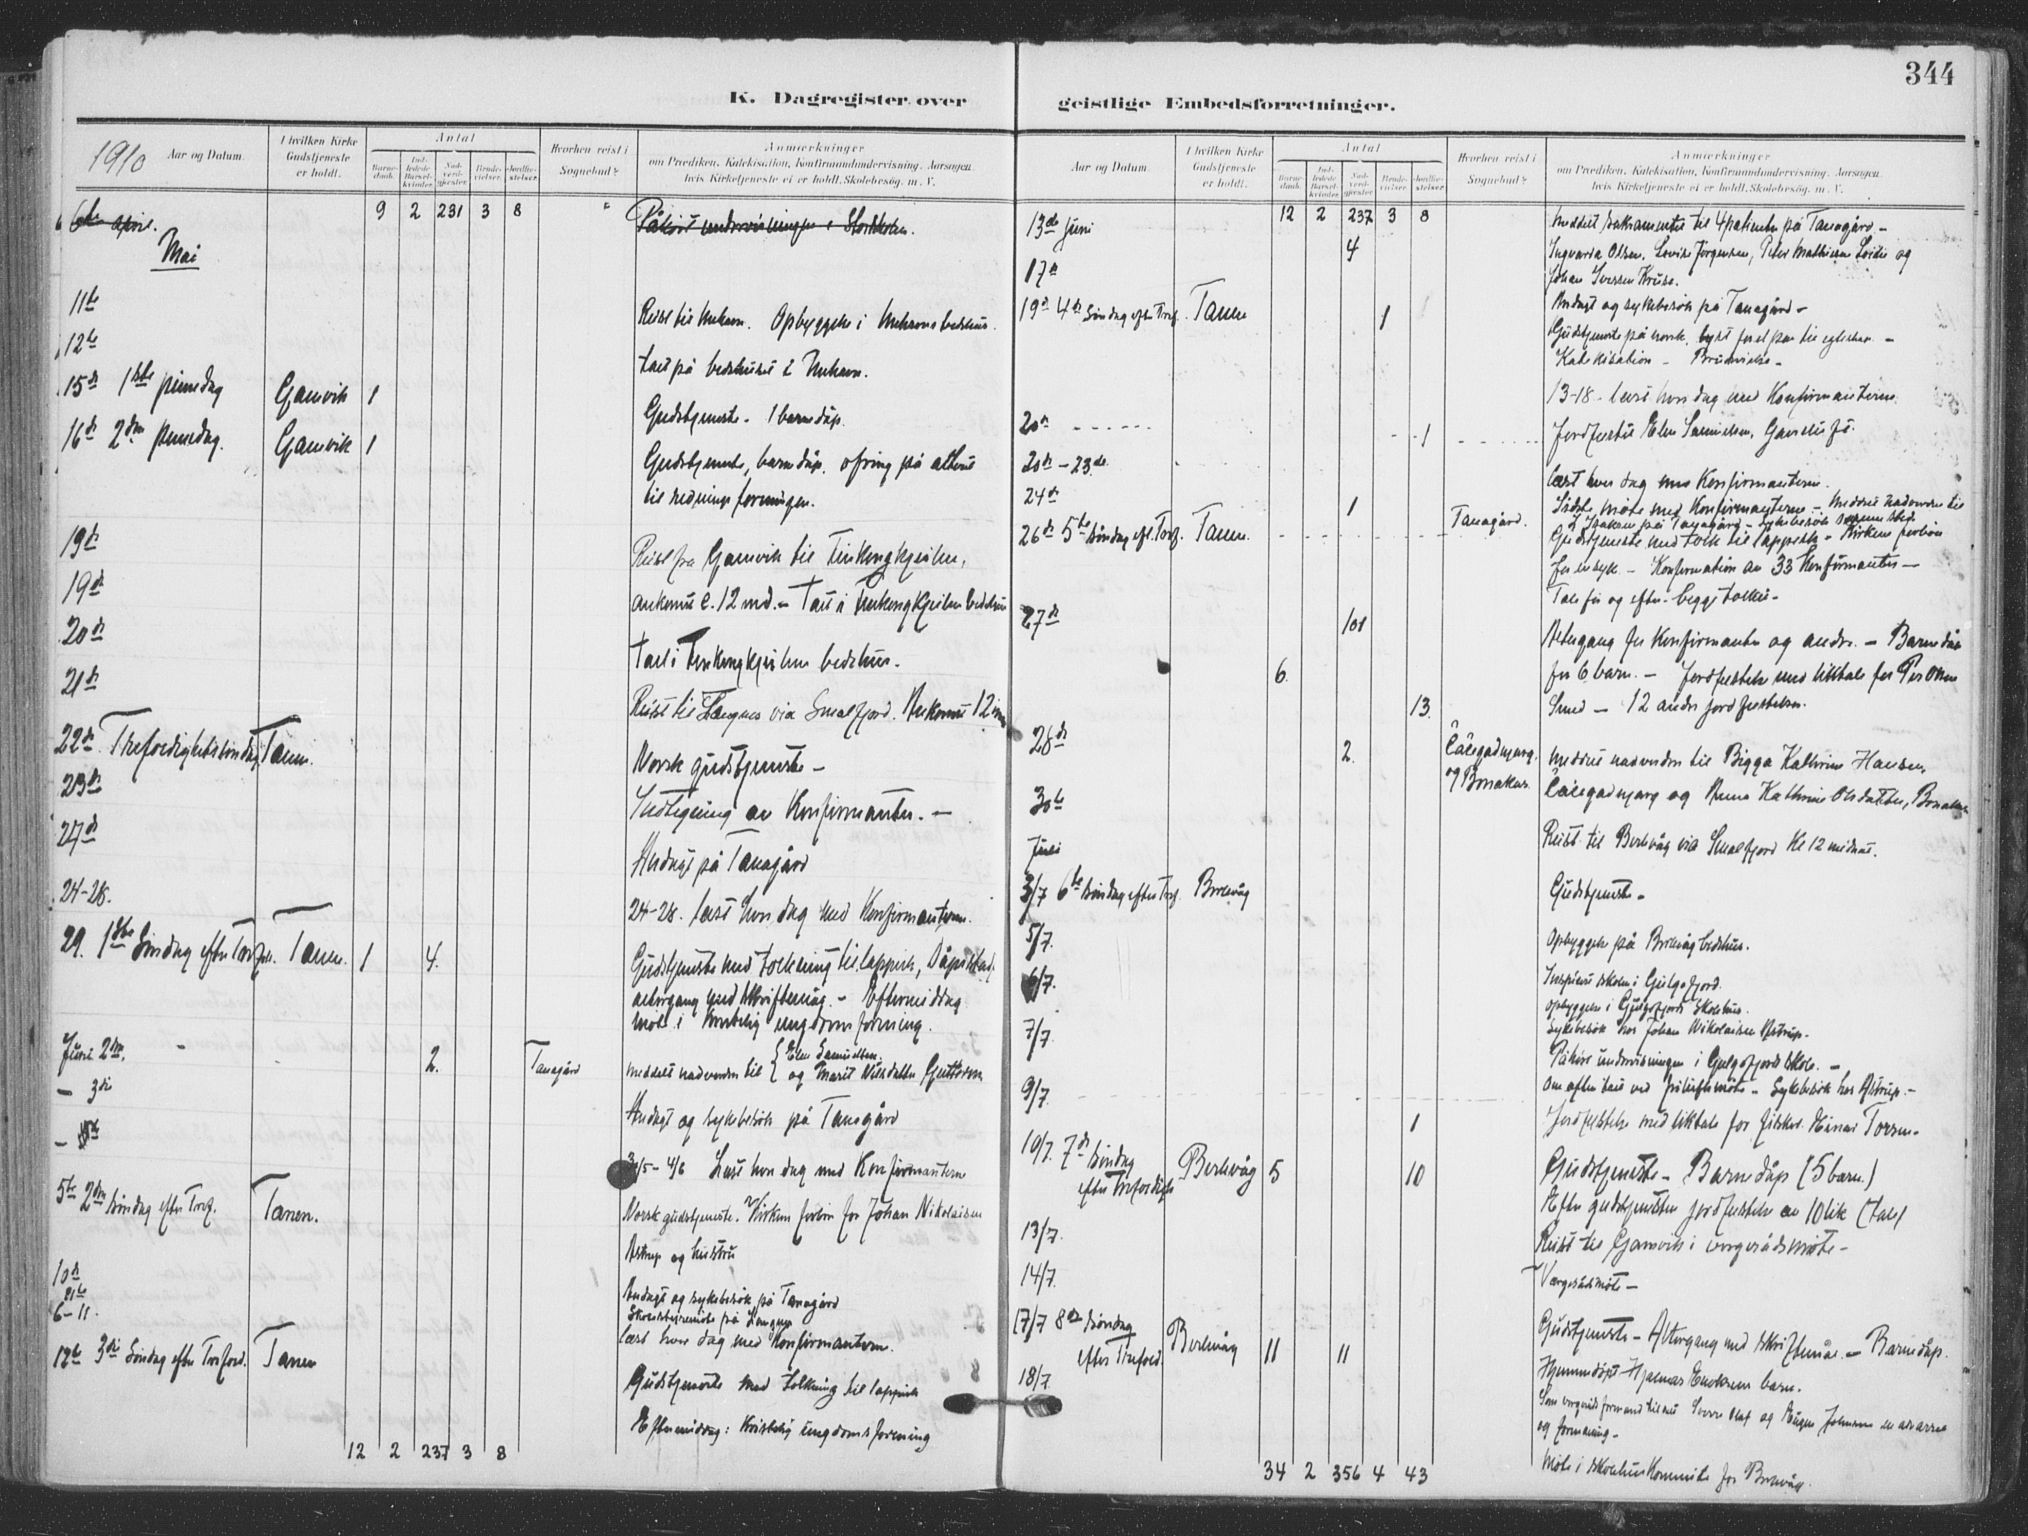 344
K. Dagregister over geistlige Embedsforretninger.
1910 Aar og Datum.
I hvilken Kirke Gudstjeneste er holdt.
Antal
Barnedaab. Indledede Barselkvinder. Nadverdgjester. Brudevielser. Jordfæstelser.
Hvorhen reist i Sognebud?
Anmærkninger
om Prædiken, Katekisation, Konfirmandundervisning, Aarsagen hvis Kirketjeneste ei er holdt, Skolebesøg, m. V.
6te april. 9 2 231 3 8 Påhørt undervisningen i
Mai
11te Reist til Mehavn. Opbyggelse i Mehavns bedehus.
12te Talt på bedehuset i Mehavn.
15de 1ste pinsedag Gamvik 1 Gudstjeneste. 1 barnedåp.
16de 2den pinsedag. Gamvik 1 Gudstjeneste, barnedåp. ofring på alteret
til redningsforeningen.
19de Reist fra Gamvik til Finkongkjeilen,
19de ankomst c. 12 md. - Talt i Finkongkjeilen bedehus
20de Talt i Finkongkjeilen bedehus.
21de Reist til Langnes via Smalfjord. Ankomst 12
22de Trefoldighetssøndag Tanen. Norsk gudstjeneste -
23de Indtegning av Konfirmanter. -
27de Andagt på Tanagård
24-28. 24-28. læst hver dag med Konfirmanterne.
29. 1ste Søndag efter Tref. Tanen. 1 4. Gudstjeneste med tolkning til lappisk, Dåp
altergang med skriftemål - Eftermiddag
møte i kristelig ungdomsforening.
Juni 2den. 2. Tanagård meddelt nadverden til { Elen Samuelsen
og Marit Nilsdatter Guttorm
- 3die Andagt og sykebesøk på Tanagård
30/5 - 4/6 Læst hver dag med Konfirmanterne
5te 2den søndag efter Tref. Tanen. Norsk gudstjeneste. Kirkens forbøn for Johan Nikolaisen
Astrup og hustru
10de Andagt og sykebesøk på Tanagård
6-11. læst hver dag med Konfirmanterne.
12te 3die Søndag efter Trefold. Tanen Gudstjeneste med tolkning til lappisk
Eftermiddag: Kristelig ungdomsforening
12 2 237 3 8
Aar og Datum
I hvilken Kirke Gudstjeneste er holdt.
Antal
Barnedaab. Indledede Barselkvinder. Nadverdgjester. Brudevielser. Jordfæstelser.
Hvorhen reist i Sognebud?
Anmærkninger
om Prædiken, Katekisation, Konfirmandundervisning, Aarsagen hvis Kirketjeneste ei er holdt, Skolebesøg, m. V.
12 2 237 3 8
13de Juni 4 Meddelt sakramentet til 4 patienter på Tanagård. -
Ingvarda Olsen, Lovise Jørgensen, Peter Mathisen og
Johan Iversen Kruse.
17de Andagt og sykebesøk på Tanagård -
19de 4de Søndag efter Tref. Tanen 1 Gudstjeneste på norsk. lyst for et par til egteskap. -
Katekisation - Brudevielse -
13-18 - læst hver dag med Konfirmanterne.
20de 1 Jordfæstet Elen Samuelsen,
20de - 23de læst hver dag med Konfirmanterne.
24de 1 Tanagård. Sidste møte med Konfirmanterne - Meddelt nadverden til
Isaksen på Tanagård - Sykebesøk samme sted.
26de 5te søndag eft. Tref. Tanen. Gudstjeneste med tolk til lappisk. - Kirkens forbøn
for en syk. - Konfirmation av 33 Konfirmanter -
Tale før og efter. begge tolket -
27de 101 Altergang for Konfirmanter og andre. - Barnedåp
6. 13. for 6 barn. - Jordfæstelse med liktale for Per Olsen
Smed - 12 andre jordfæstelser.
28de 2. Cácegadnjarg og Bonakas. Meddelt nadverden til Bigga Kathrine Hansen,
Cácegadnjarg og Anna Kathrine Olsdatter, Bonakas
30te Reist til Berlevåg via Smalfjord Kl 12 midnat.
Juli
3/7 6te søndag efter Tref. Berlevåg Gudstjeneste -
5/7. Opbyggelse på Berlevåg bedehus.
6/7. Inspiceret skolen i Gulgofjord.
opbyggelse i Gulgofjords skolehus.
Sykebesøk hos Johan Nikolaisen Astrup.
7/7. Påhørt undervisningen i Gulgofjords skole. -
om aften talt ved friluftsmøte - Sykebesøk hos Astrup. -
9/7. 1 Jordfæstelse med liktale for fisker Torsen.
10/7. 7de søndag efter Trefoldigh. Berlevåg 5 10 Gudstjeneste - Barnedåp (5 barn.)
Efter gudstjenesten jordfæstelse av 10 lik (tale)
13/7. Reist til Gamvik i vergerådsmøte -
14/7. Vergerådsmøte -
17/7 8de søndag efter Trefold. Berlevåg 11 11 Gudstjeneste - Altergang med skriftemål. - Barnedåp.
Hjemmedøpt Hjalmar Eriksens barn.
18/7. Som vergerådsformand tildelt Sverre Olaf og Johansen en advarsel
og formaning -
Møte i skolehuskomiteen for Berlevåg.
34 2 356 4 43